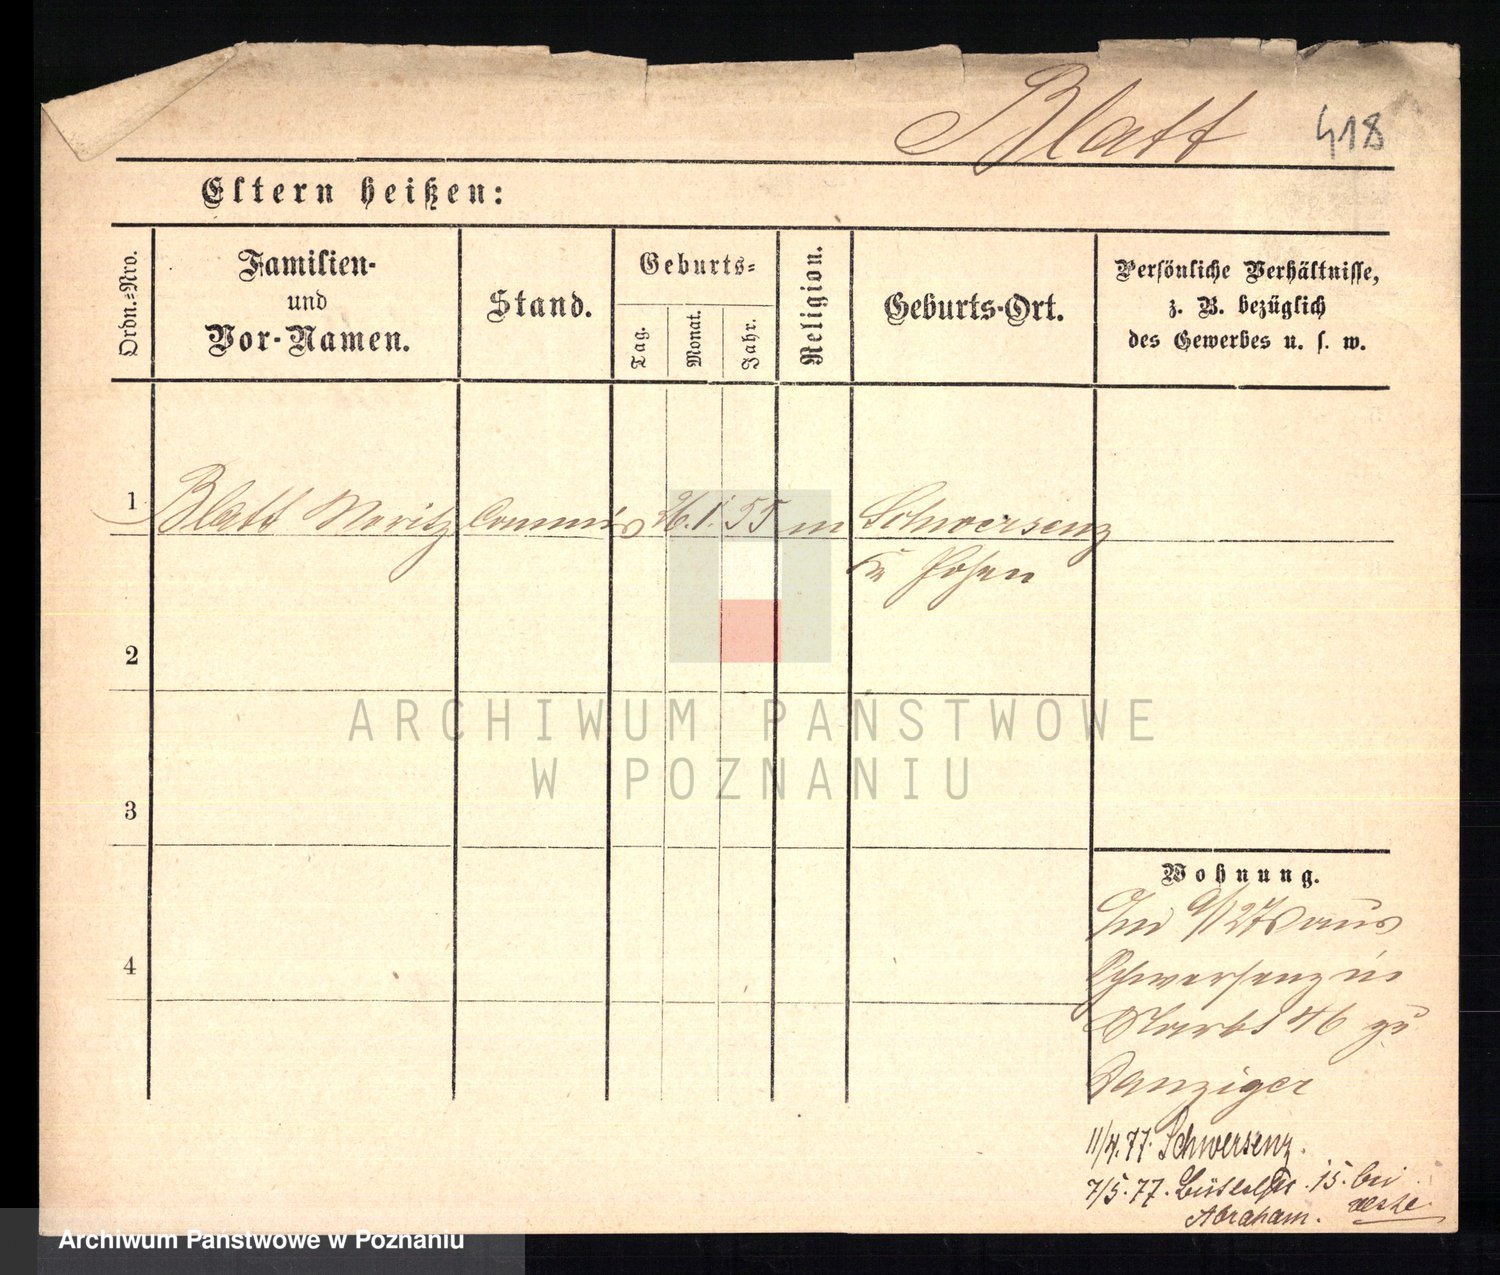 Blatt 418
Eltern heißen:
Ordn.=Nro.
Familien-
und
Vor-Namen.
Stand.
Geburts=
Tag.
Monat.
Jahr.
Religion.
Geburts-Ort.
Persönliche Verhältnisse,
z. B. bezüglich
des Gewerbes u. s. w.
1 Blatt Moritz Commis 26. 1. 55 m Schwersenz
Posen
2
ARCHIWUM PAŃSTWOWE
W POZNANIU
3
Wohnung.
aus
Schwersenz in
4
Markt 46 zu
Danziger
11/4.77. Schwersenz.
7/5.77. 15. bei
Abraham.
Archiwum Państwowe w Poznaniu